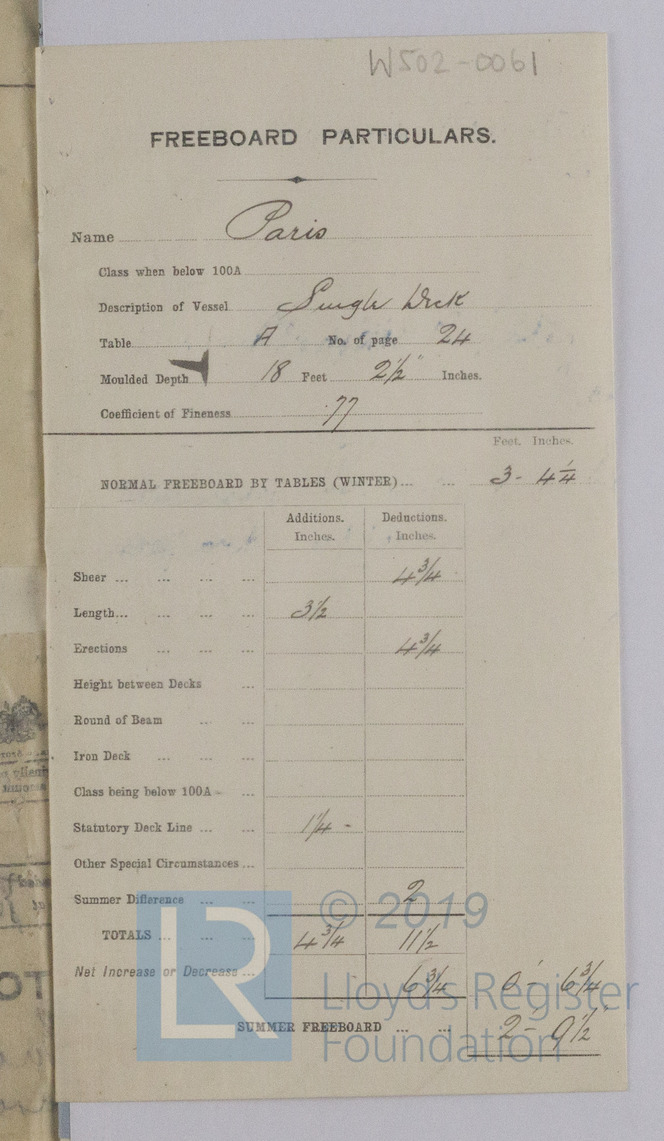 W502-0061
FREEBOARD PARTICULARS.
Name Paris
Class when below 100A
Description of Vessel Single Deck
Table A No. of page 24
Moulded Depth 18 Feet 2½" Inches.
Coefficient of Fineness .77
Feet. Inches.
NORMAL FREEBOARD BY TABLES (WINTER)... ... 3 - 4¼
Additions. Deductions.
Inches. Inches.
Sheer ... ... ... ... 4¾
Length... ... ... ... 3½
Erections ... ... ... 4¾
Height between Decks ...
Round of Beam ... ...
Iron Deck ... ... ...
Class being below 100A ...
Statutory Deck Line ... ... 1¼ -
Other Special Circumstances ...
Summer Difference ... ... 2
© 2019
TOTALS ... ... ... 4¾ 11½
Net Increase or Decrease ... 6¾ 0 - 6¾
LR Lloyd's Register
SUMMER FREEBOARD ... ... 2 - 9½"
Foundation